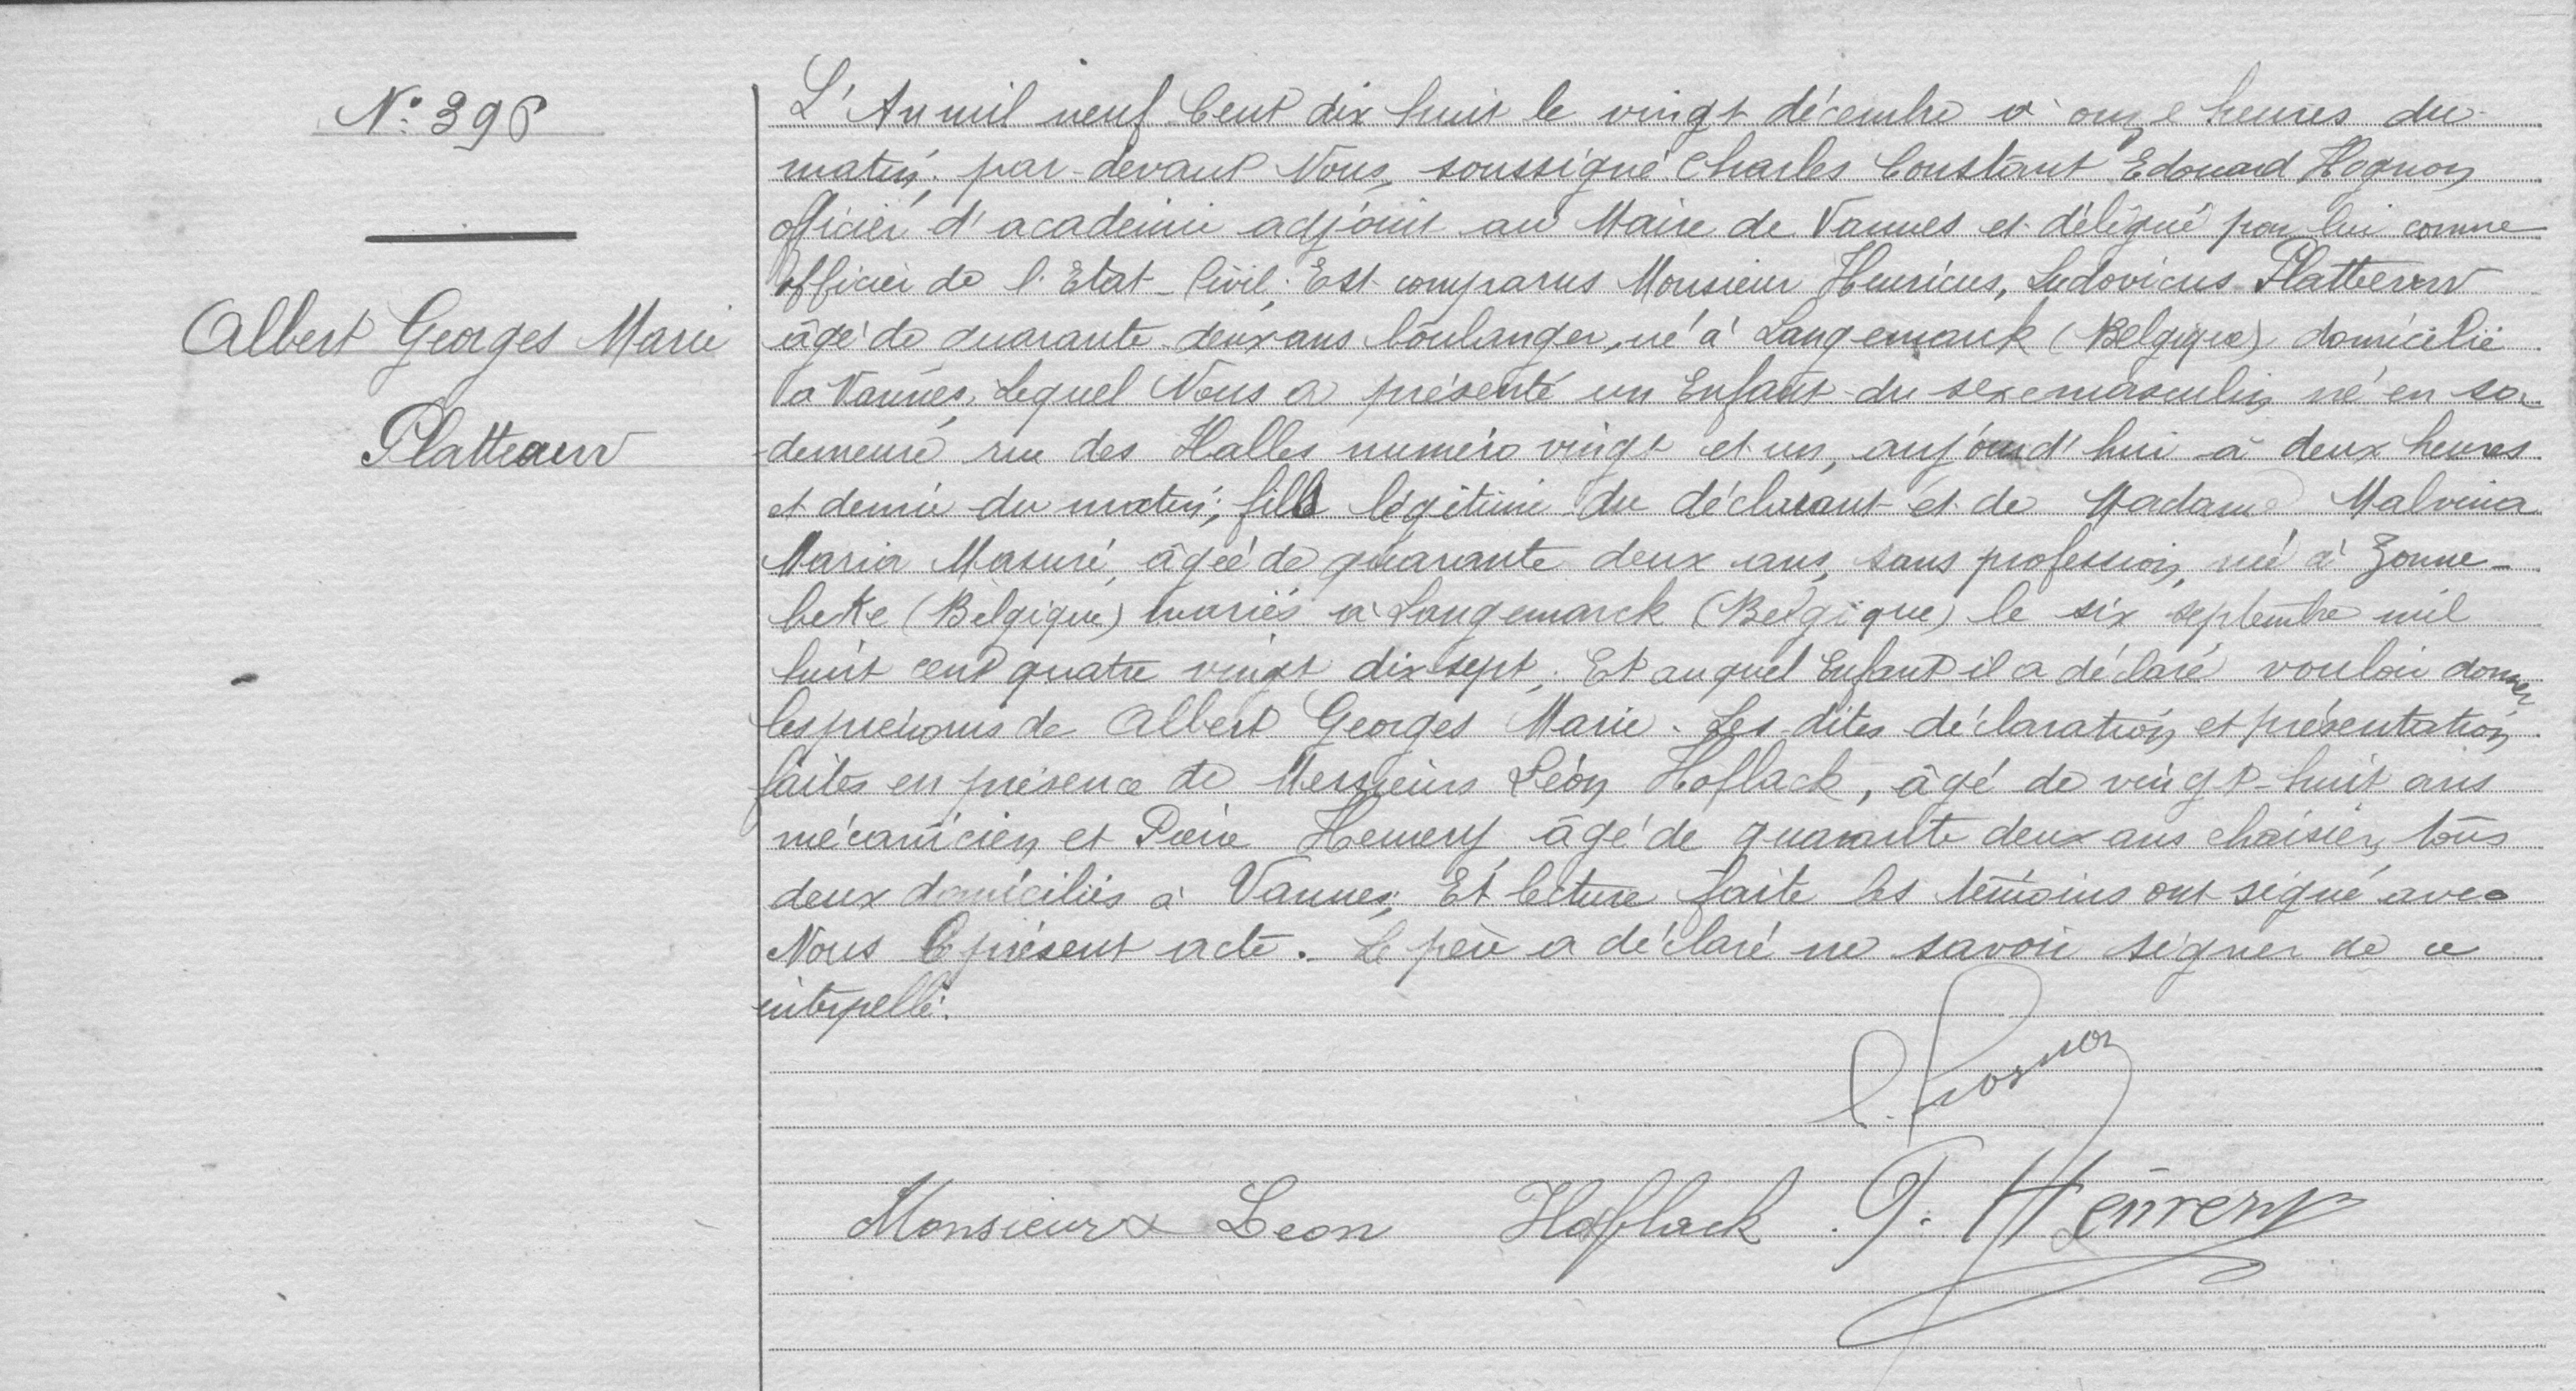 N° 396
Albert Georges Marie
Platteauw
L'An mil neuf Cent dix huit le vingt décembre à onze heures du
matin; par-devant Nous, soussigné Charles Constant Edouard Hognon
officier d'académie adjoint au Maire de Vannes et délégué par lui comme
officier de l'Etat-Civil; Est comparus Monsieur Henricus, Ludovicus Platteeuw
âgé de quarante-deux ans boulanger, né à Langemarck (Belgique) domicilié
à Vannes, Lequel Nous a présenté un Enfant du sexe masculin, né en sa
demeure rue des Halles numéro vingt et un, aujourd'hui à deux heures
et demie du matin; fils légitime du déclarant et de Madame Malvina
Maria Masuré, âgée de quarante deux ans, sans profession, née à Zonne-
beke (Belgique) mariés à Langemarck (Belgique) le six septembre mil
huit cent quatre vingt dix sept; Et auquel Enfant il a déclaré vouloir donner
les prénoms de Albert Georges Marie. Les dites déclaration et présentation
faites en présence de Messieurs Léon Hoflack, âgé de vingt-huit ans
mécanicien et Pierre Hemery âgé de quarante deux ans chaisier, tous
deux domiciliés à Vannes; Et lecture faite les témoins ont signé avec
Nous le présent acte. Le père a déclaré ne savoir signer de ce
interpellé.
C. Hognon
Monsieur Leon Hoflack P. Hemery